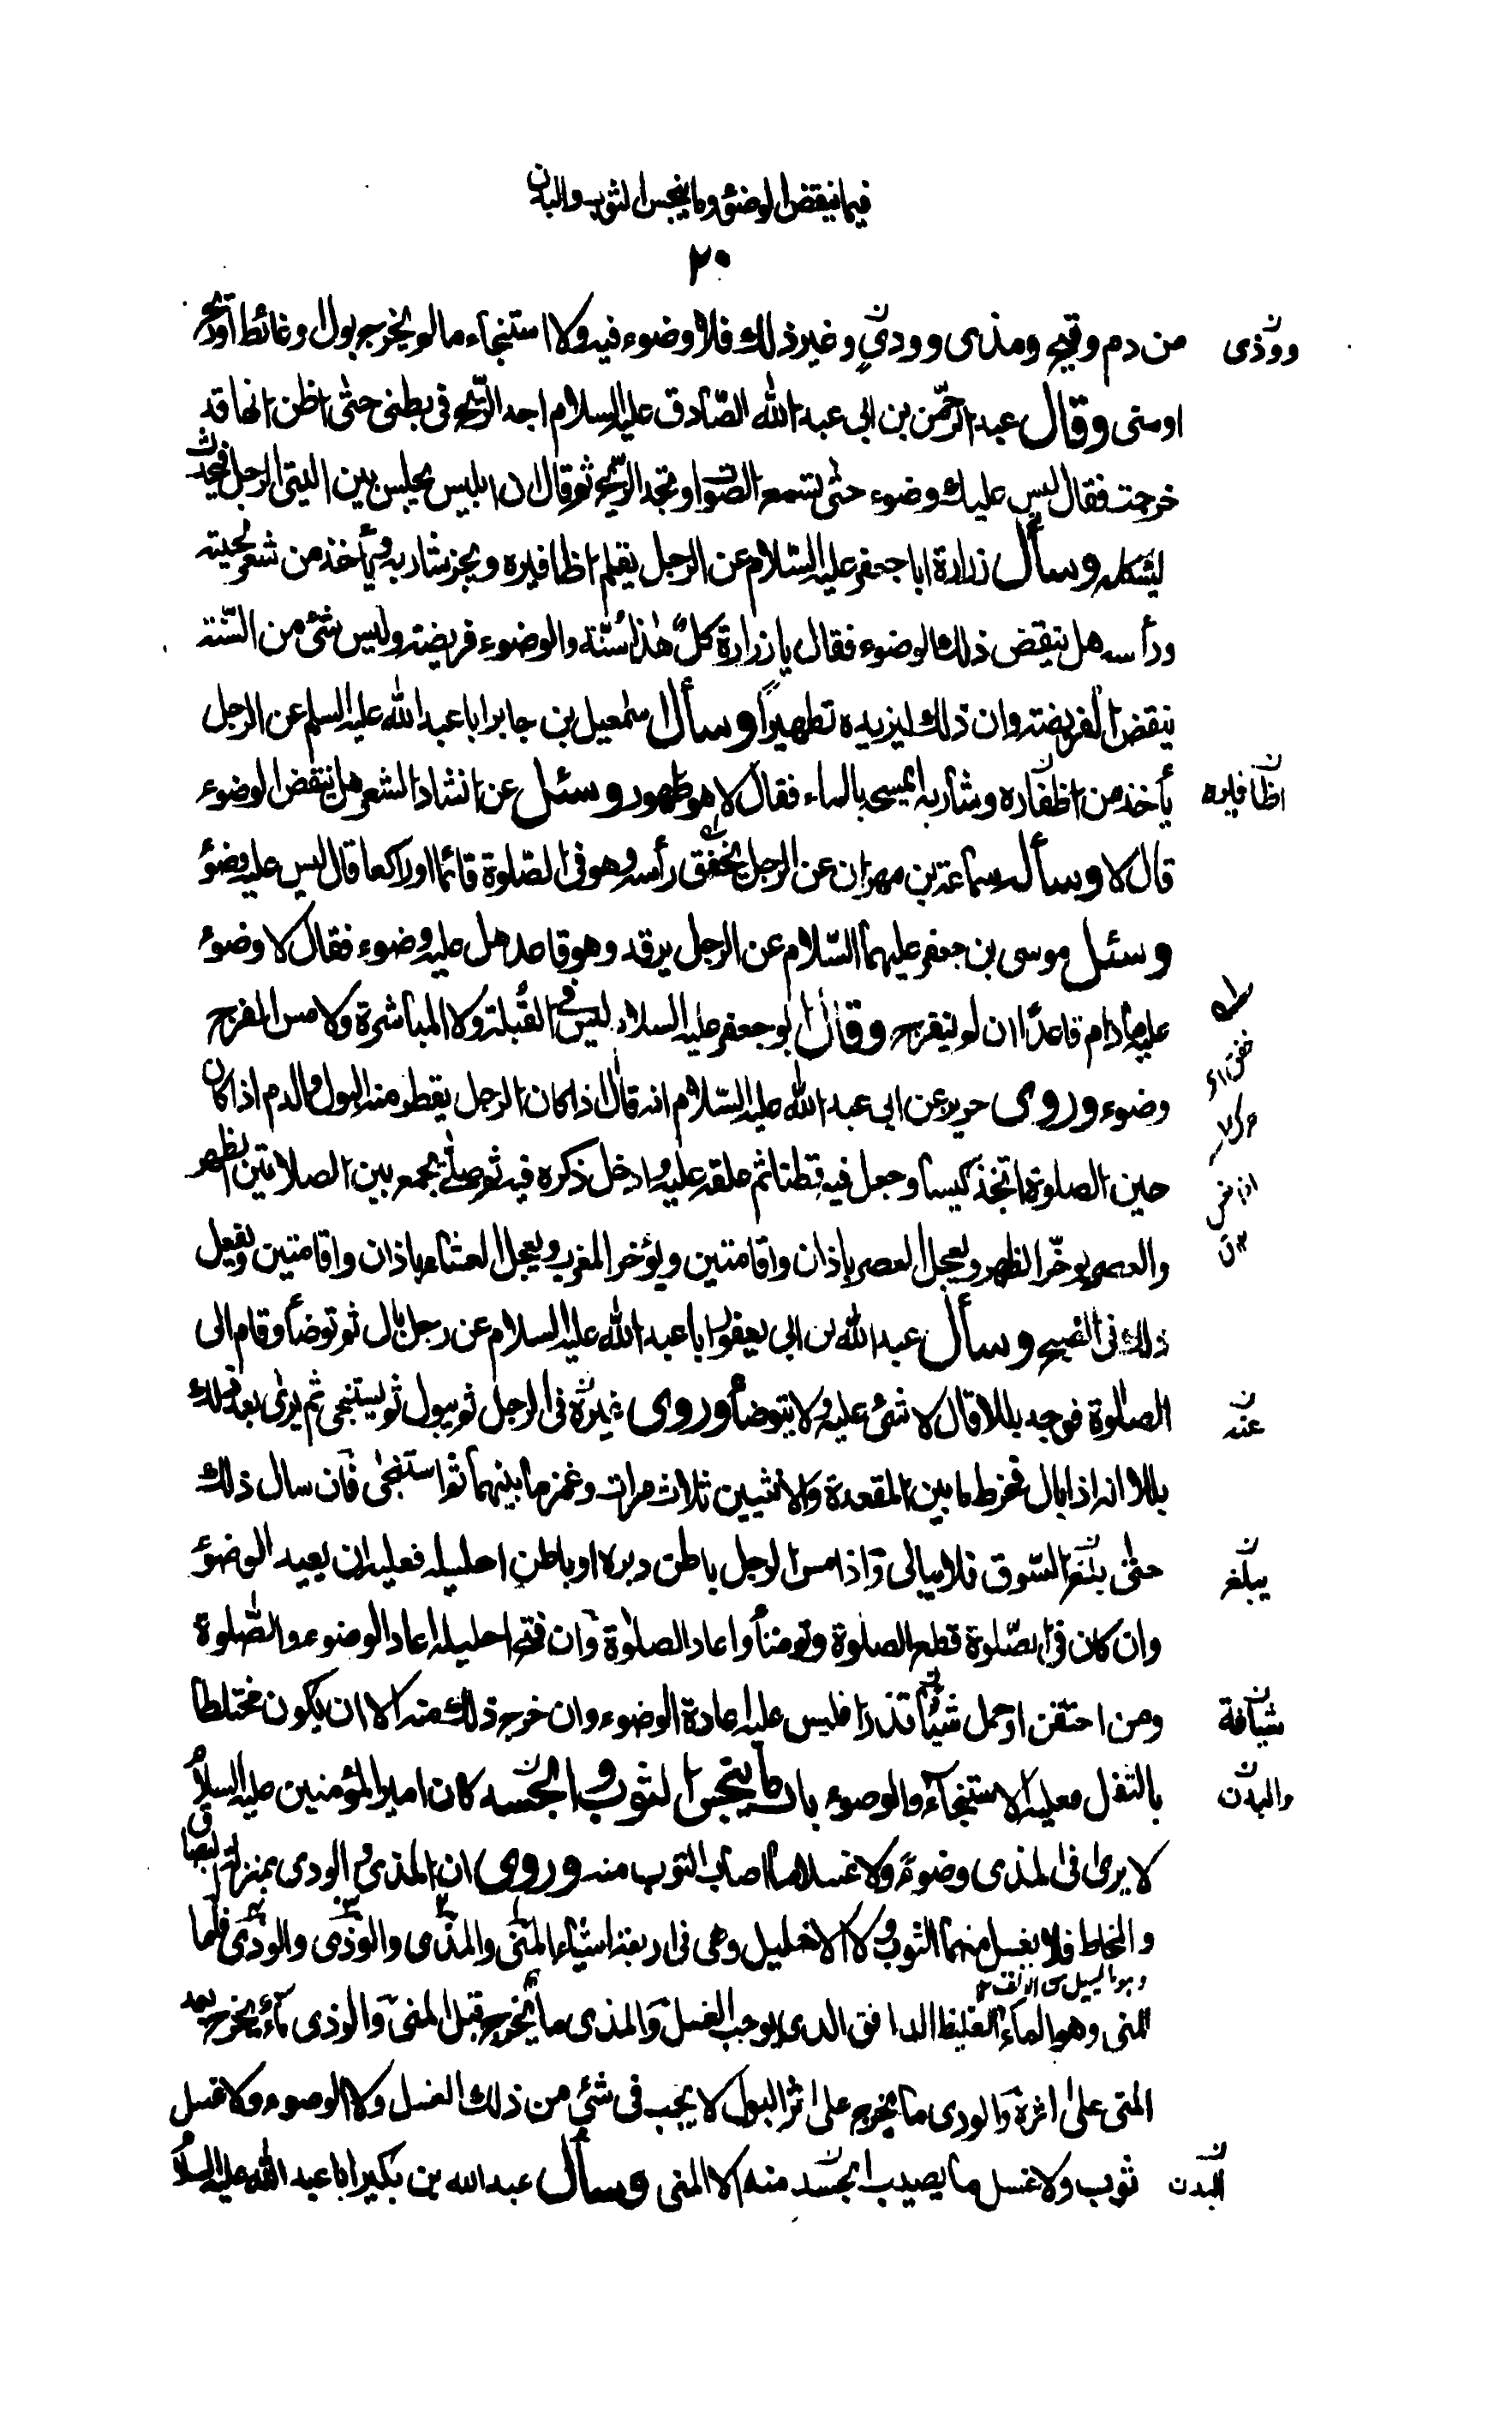 فيما ينقض الوضوء وما ينجس الثوب والبدن
٢٠
من دم وقيح ومذى وودي وغير ذلك فلا وضوء فيه ولا استنجاء ما لم يخرج بول او غائط او ريح
ووذى
او منى وقال عبد الرحمن بن ابي عبد الله الصّادق عليه السلام اجد الرّيح فى بطنى حتى اظن انها قد
خرجت فقال ليس عليك وضوء حتى تسمع الصّوت او تجد الريح ثم قال ان ابليس يجلس بين اليتى الرجل فيحدث
ليشككه وسأل زرارة ابا جعفر عليه السّلام عن الرجل يقلم اظافيره ويجز شاربه ويأخذ من شعر لحيته
ورأسه هل ينقض ذلك الوضوء فقال يا زرارة كلّ هذا سُنّة والوضوء فريضة وليس شئ من السّنة
ينقض الفريضة وان ذلك ليزيده تطهيراً وسأل اسمعيل بن جابر ابا عبد الله عليه السلم عن الرجل
يأخذ من اظفاره وشاربه ايمسحه بالماء فقال لا هو طهور وسئل عن انشاد الشعر هل ينقض الوضوء
اظافيره
قال لا وسأله سماعة بن مهران عن الرجل يخفق رأسه وهو فى الصّلوة قائما او راكعا قال ليس عليه وضؤ
وسئل موسى بن جعفر عليهما السّلام عن الرجل يرقد وهو قاعد هل عليه وضوء فقال لا وضوء
عليه ما دام قاعدًا ان لم ينفرج وقال ابو جعفر عليه السلام ليس فى القُبلة ولا المباشرة ولا مس الفرج
وضوء وروى حريز عن ابى عبد الله عليه السّلام انه قال اذا كان الرجل يقطر منه البول والدم اذا كان
حين الصلوة اتخذ كيسا وجعل فيه قطنا ثم علقه عليه وادخل ذكره فيه ثم صلّى يجمع بين الصلاتين الظهر
والعصر يوخّر الظهر ويعجل العصر باذان واقامتين ويؤخر المغرب ويعجل العشاء باذان واقامتين ويفعل
ذلك فى الصبح وسأل عبد الله بن ابى يعفور ابا عبد الله عليه السلام عن رجل بال ثم توضأ وقام الى
الصلوة فوجد بللا قال لا شئ عليه ولا يتوضأ وروى غيره فى الرجل ثم يبول ثم يستنجى ثم يرى بعد ذلك
عنه
بللا انه اذا بال فخرط ما بين المقعدة والانثيين ثلاث مرات وغمز ما بينهما ثم استنجى فان سال ذلك
حتى بلغ السّوق فلا يبالى واذا مس الرجل باطن دبره او باطن احليله فعليه ان يعيد الوضوء
يبلغ
وان كان فى الصّلوة قطع الصلوة وتوضأ واعاد الصلوة وان فتح احليله اعاد الوضوء والصّلوة
ومن احتقن او حمل شيئا قذرا فليس عليه اعادة الوضوء وان خرج ذلك منه الا ان يكون مختلطا
شيافة
بالثفل فعليه الاستنجاء والوضوء باب ما ينجس الثوب والجسد كان امير المؤمنين عليه السلام
والبدن
لا يرى فى المذى وضوءً ولا غسل ما اصاب الثوب منه وروى ان المذى والودى بمنزلة البصاق
والمخاط فلا يغسل منهما الثوب ولا الاحليل وهى اربعة اشياء المنى والمذى والوذى والودى فامّا
المنى وهو الماء الغليظ الدافق الذى يوجب الغسل والمذى ما يخرج قبل المنى والوذى ما يخرج بعد
المنى على اثره والودى ما يخرج على اثر البول لا يجب فى شئ من ذلك الغسل ولا الوضوء ولا غسل
ثوب ولا غسل ما يصيب الجسد منه الا المنى وسأل عبد الله بن بكير ابا عبد الله عليه السلام
البدن